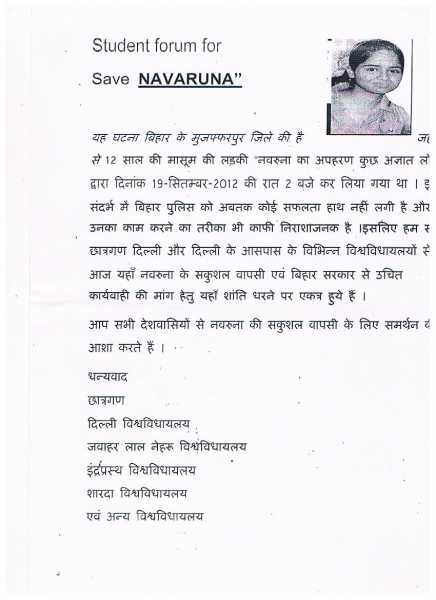 Student forum for
Save NAVARUNA”
यह घटना बिहार के मुजफ्फरपुर जिले की है
से 12 साल की मासूम की लड़की "नवरुना का अपहरण कुछ अज्ञात
द्वारा दिनांक 19-सितम्बर-2012 की रात 2 बजे कर लिया गया था ।
संदर्भ में बिहार पुलिस को अबतक कोई सफलता हाथ नहीं लगी है और
उनका काम करने का तरीका भी काफी निराशाजनक है ।इसलिए हम
छात्रगण दिल्ली और दिल्ली के आसपास के विभिन्न विश्वविधायलयों से
आज यहाँ नवरुना के सकुशल वापसी एवं बिहार सरकार से उचित
कार्यवाही की मांग हेतु यहाँ शांति धरने पर एकत्र हुये हैं ।
आप सभी देशवासियों से नवरुना की सकुशल वापसी के लिए समर्थन
आशा करते हैं ।
धन्यवाद
छात्रगण
दिल्ली विश्वविधायलय
जवाहर लाल नेहरू विश्वविधायलय
इंद्रप्रस्थ विश्वविधायलय
शारदा विश्वविधायलय
एवं अन्य विश्वविधायलय